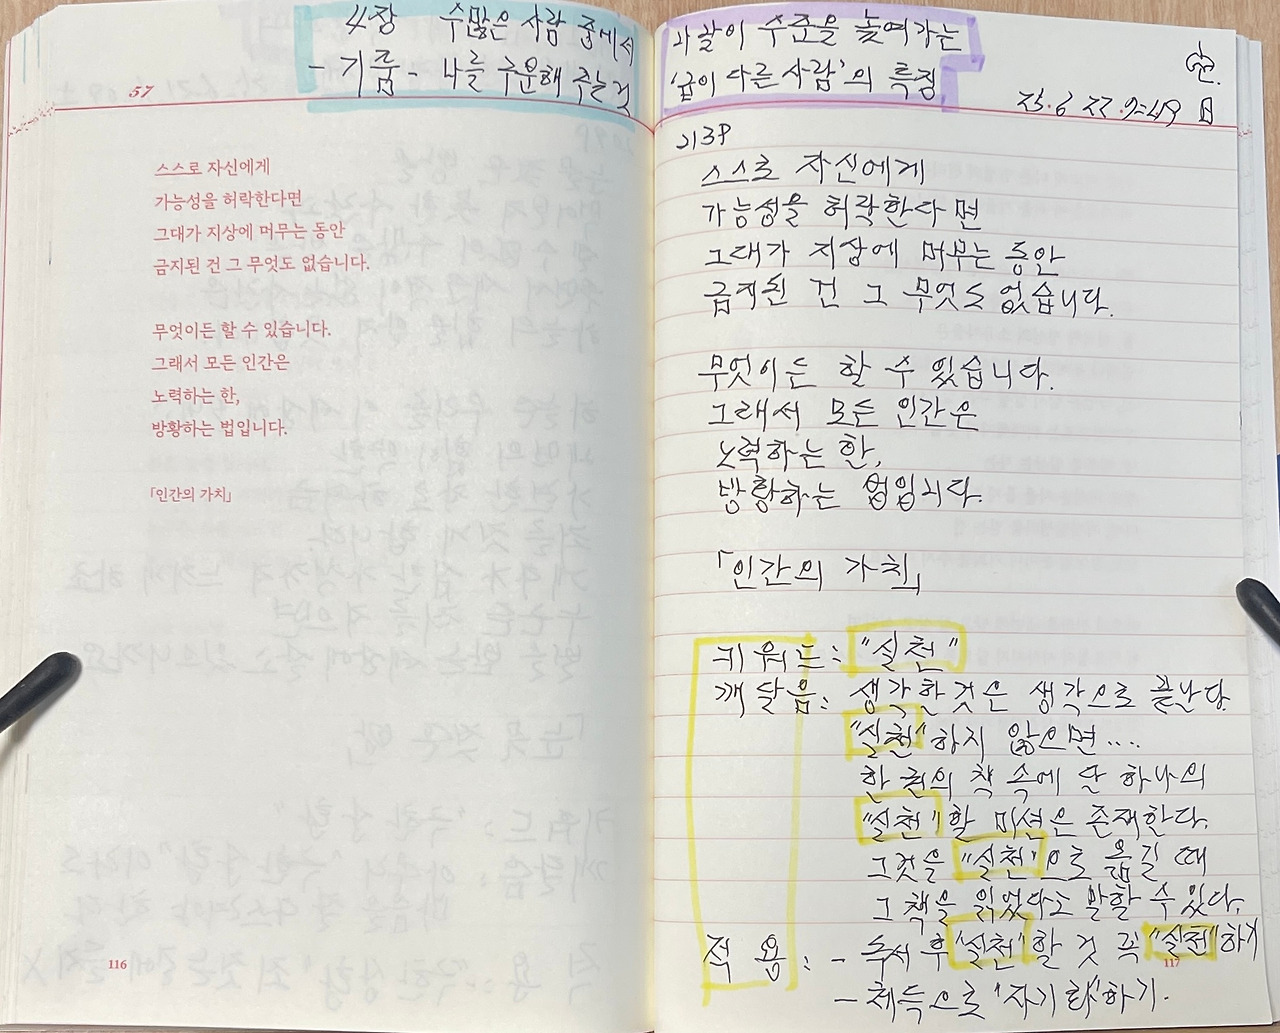 4장 수많은 사람 중에서
- 기품 - 나를 구분해 주는 것
57
스스로 자신에게
가능성을 허락한다면
그대가 지상에 머무는 동안
금지된 건 그 무엇도 없습니다.
무엇이든 할 수 있습니다.
그래서 모든 인간은
노력하는 한,
방황하는 법입니다.
「인간의 가치」
116
나날이 수준을 높여가는
'급이 다른 사람'의 특징
25. 6 22. 9:49 日
213P
스스로 자신에게
가능성을 허락한다면
그대가 지상에 머무는 동안
금지된 건 그 무엇도 없습니다.
무엇이든 할 수 있습니다.
그래서 모든 인간은
노력하는 한,
방황하는 법입니다.
「인간의 가치」
키워드: "실천"
깨달음: 생각한것은 생각으로 끝난다.
"실천"하지 않으면....
한 권의 책 속에 단 하나의
"실천"할 미션은 존재한다.
그것을 "실천"으로 옮길 때
그 책을 읽었다고 말할 수 있다.
적용: - 독서 후 "실천"할 것 꼭 "실천"하기
117
- 체득으로 '자기화'하기.